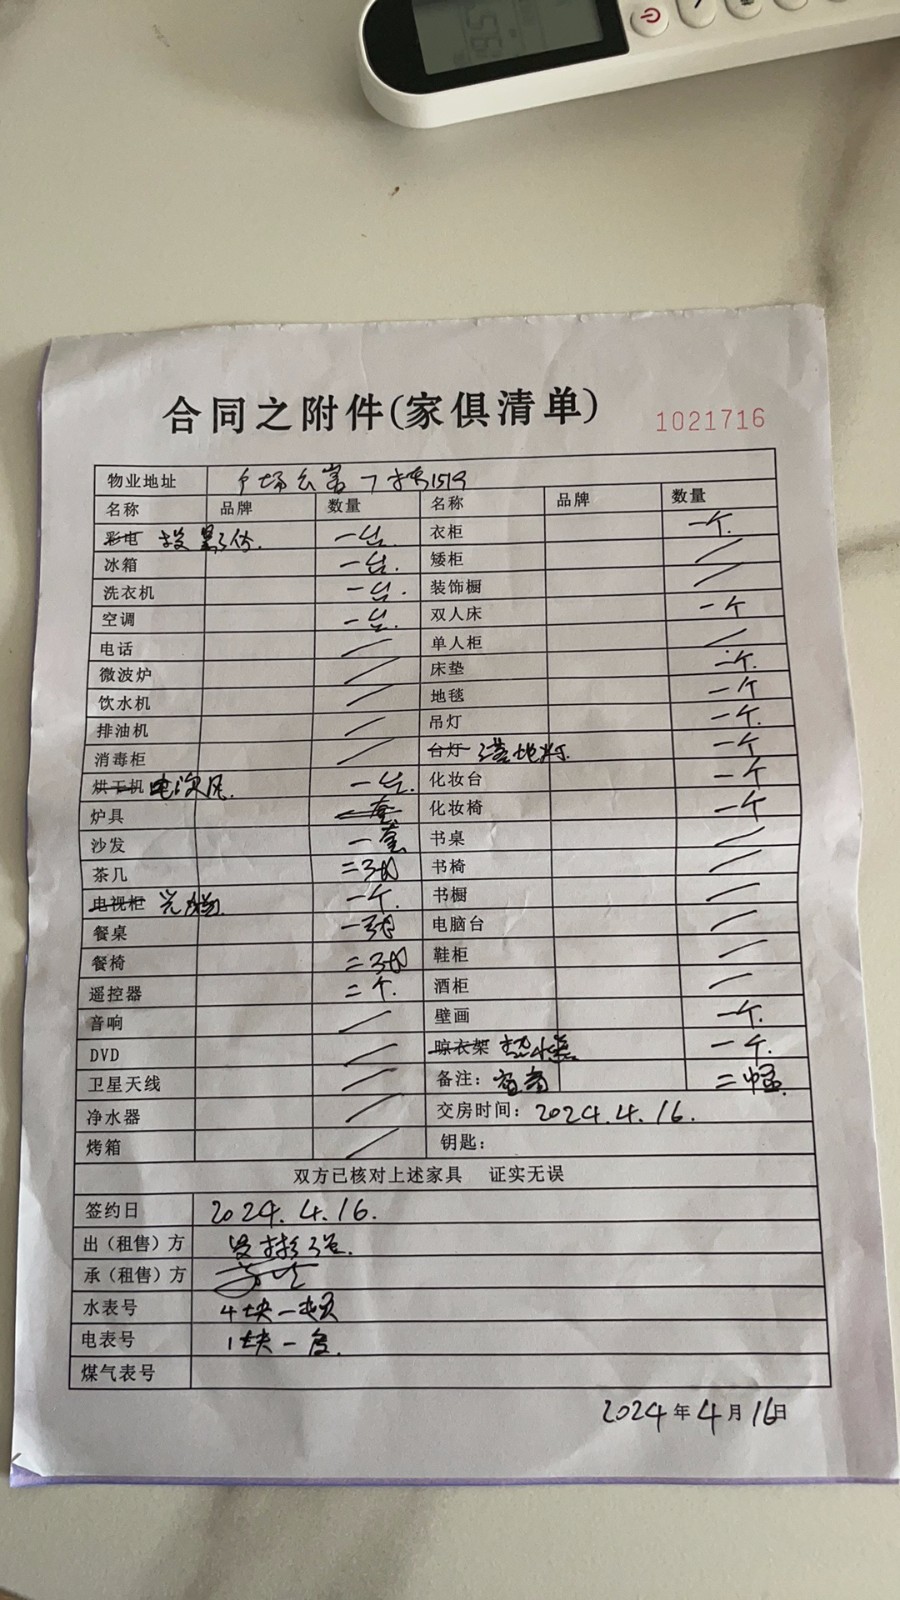 合同之附件(家俱清单) 1021716
物业地址 广场公寓7栋1519
名称 品牌 数量 名称 品牌 数量
彩电 投影仪. 一台. 衣柜 一个.
冰箱 一台. 矮柜 /
洗衣机 一台. 装饰橱 /
空调 一台. 双人床 一个
电话 / 单人柜 /
微波炉 / 床垫 一个.
饮水机 / 地毯 一个
排油机 / 吊灯 一个.
消毒柜 / 台灯 落地灯. 一个
烘干机 电吹风. 一台. 化妆台 一个
炉具 一套 化妆椅 一个
沙发 一套 书桌 /
茶几 二张 书椅 /
电视柜 一个. 书橱 /
餐桌 一张 电脑台 /
餐椅 二张 鞋柜 /
遥控器 二个. 酒柜 /
音响 / 壁画 一个.
DVD / 晾衣架 一个.
卫星天线 / 备注: 窗帘 二幅.
净水器 / 交房时间: 2024.4.16.
烤箱 / 钥匙:
双方已核对上述家具 证实无误
签约日 2024.4.16.
出(租售)方
承(租售)方
水表号 4块一吨
电表号 1块一度.
煤气表号
2024年4月16日